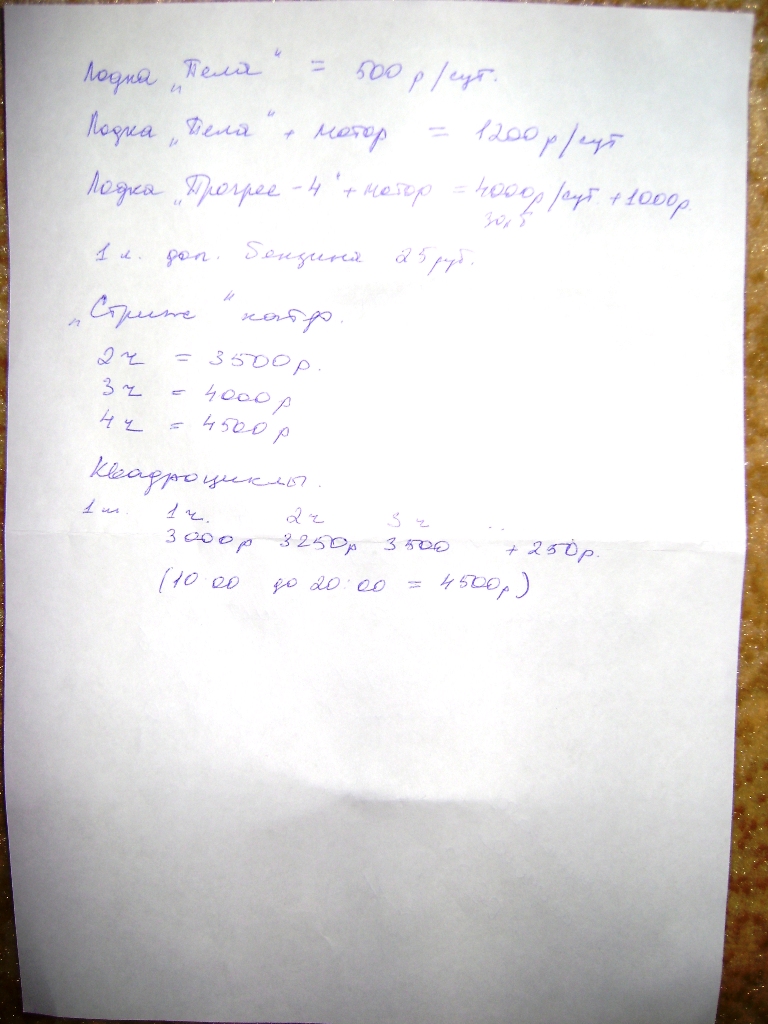 Лодка „Пела“ = 500 р/сут.
Лодка „Пела“ + мотор = 1200 р/сут
Лодка „Прогрес-4“ + мотор = 4000р/сут. + 1000р.
1 л. доп. бензина 25 руб.
„Стриж“ катер.
2 ч = 3500 р.
3 ч = 4000 р
4 ч = 4500 р
Квадроциклы.
1 ч. 2 ч 3 ч ..
3000р 3250р 3500 + 250р.
(10 00 до 20:00 = 4500р)